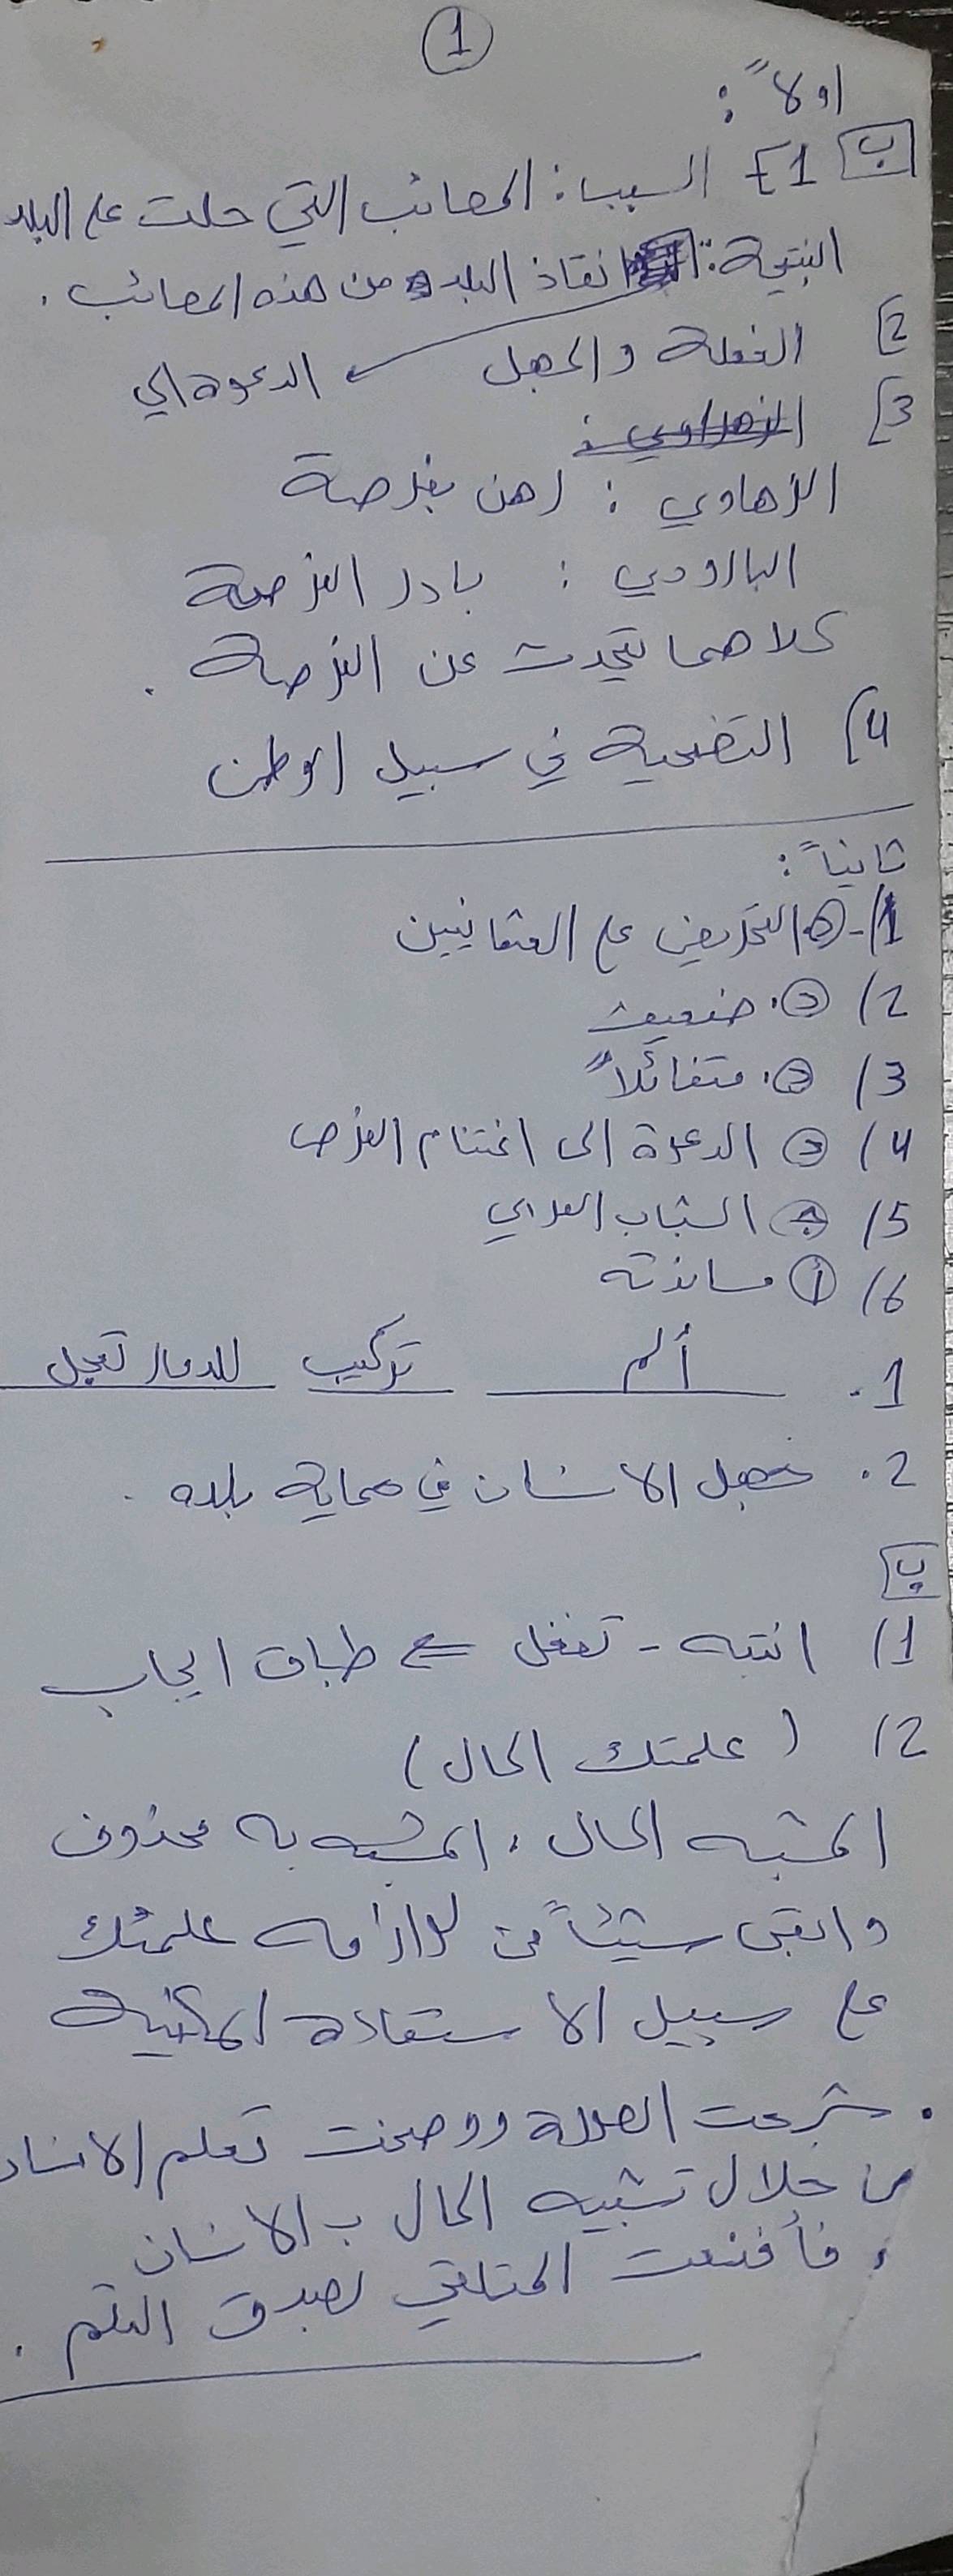 1
اولاً :
ب 1] السبب : المصائب التي حلت على البلد
النتيجة : انقاذ البلد من هذه المصائب .
2] الغفلة والجهل ← الدعوة الي
3] الزهاوي :
الزهاوي : رهن بفرصة
البارودي : بادر الفرصة
كلاهما يتحدث عن الفرصة .
4] التضحية في سبيل الوطن
ثانياً :
1/- التحريض على العثمانيين
2/ . ضعيف
3/ . متفائلاً
4/ الدعوة الى اغتنام الفرص
5/ الشباب العربي
6/ أ مساندته
1. ألم تركيب للدمار تعجل
2. جهل الانسان في حماية بلده .
ب
1/ انتبه - تغفل طباق ايجاب
2/ ( علمتك الحال )
المشبه الحال ، المشبه به محذوف
وابقى شيئاً من لوازمه علمتك
على سبيل الاستعارة المكنية
. شرحت الصورة ووضحت تعلم الانسان
من خلال تشبيه الحال ب الانسان
، فأقنعت المتلقي بصدق التعلم .